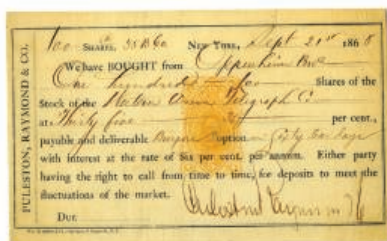 100 SHARES, 35 B 60 NEW YORK, Sept 21st 1868
We have BOUGHT from Oppenheim Bros
One hundred 100 Shares of the
Stock of the Western Union Telegraph Co
at Thirty five 35 per cent.,
payable and deliverable Buyers option in Sixty 60 days
with interest at the rate of Six per cent. per annum. Either party
having the right to call from time to time, for deposits to meet the
fluctuations of the market.
DUE
PULESTON, RAYMOND & CO.